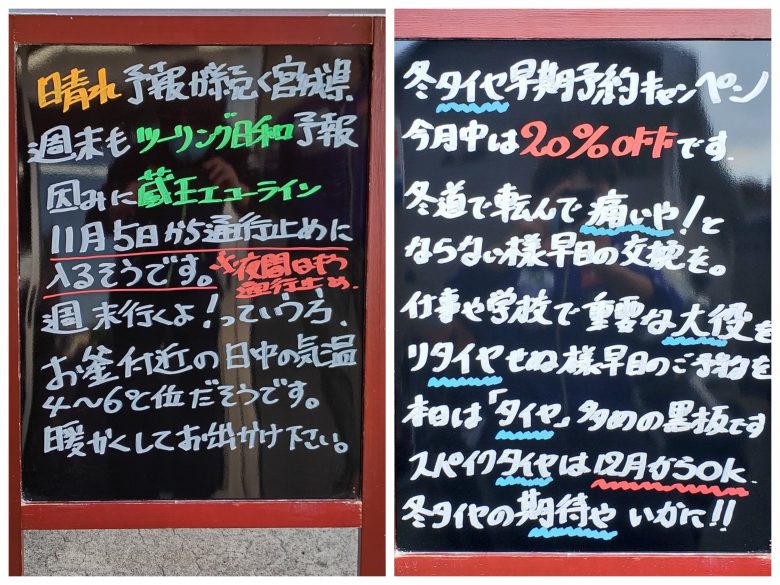 晴れ予報が続く宮城県、
週末もツーリング日和予報
因みに蔵王エコーライン
11月5日から通行止めに
入るそうです。※夜間はもう
通行止め。
週末行くよ！っていう方、
お釜付近の日中の気温
4〜6℃位だそうです。
暖かくしてお出かけ下さい。
冬タイヤ早期予約キャンペーン
今月中は20%OFFです。
冬道で転んで痛いや！と
ならない様早目の交換を。
仕事や学校で重要な大役を
リタイヤせぬ様早目のご予約を
本日は「タイヤ」多めの黒板です
スパイクタイヤは12月からOK
冬タイヤの期待や いかに!!